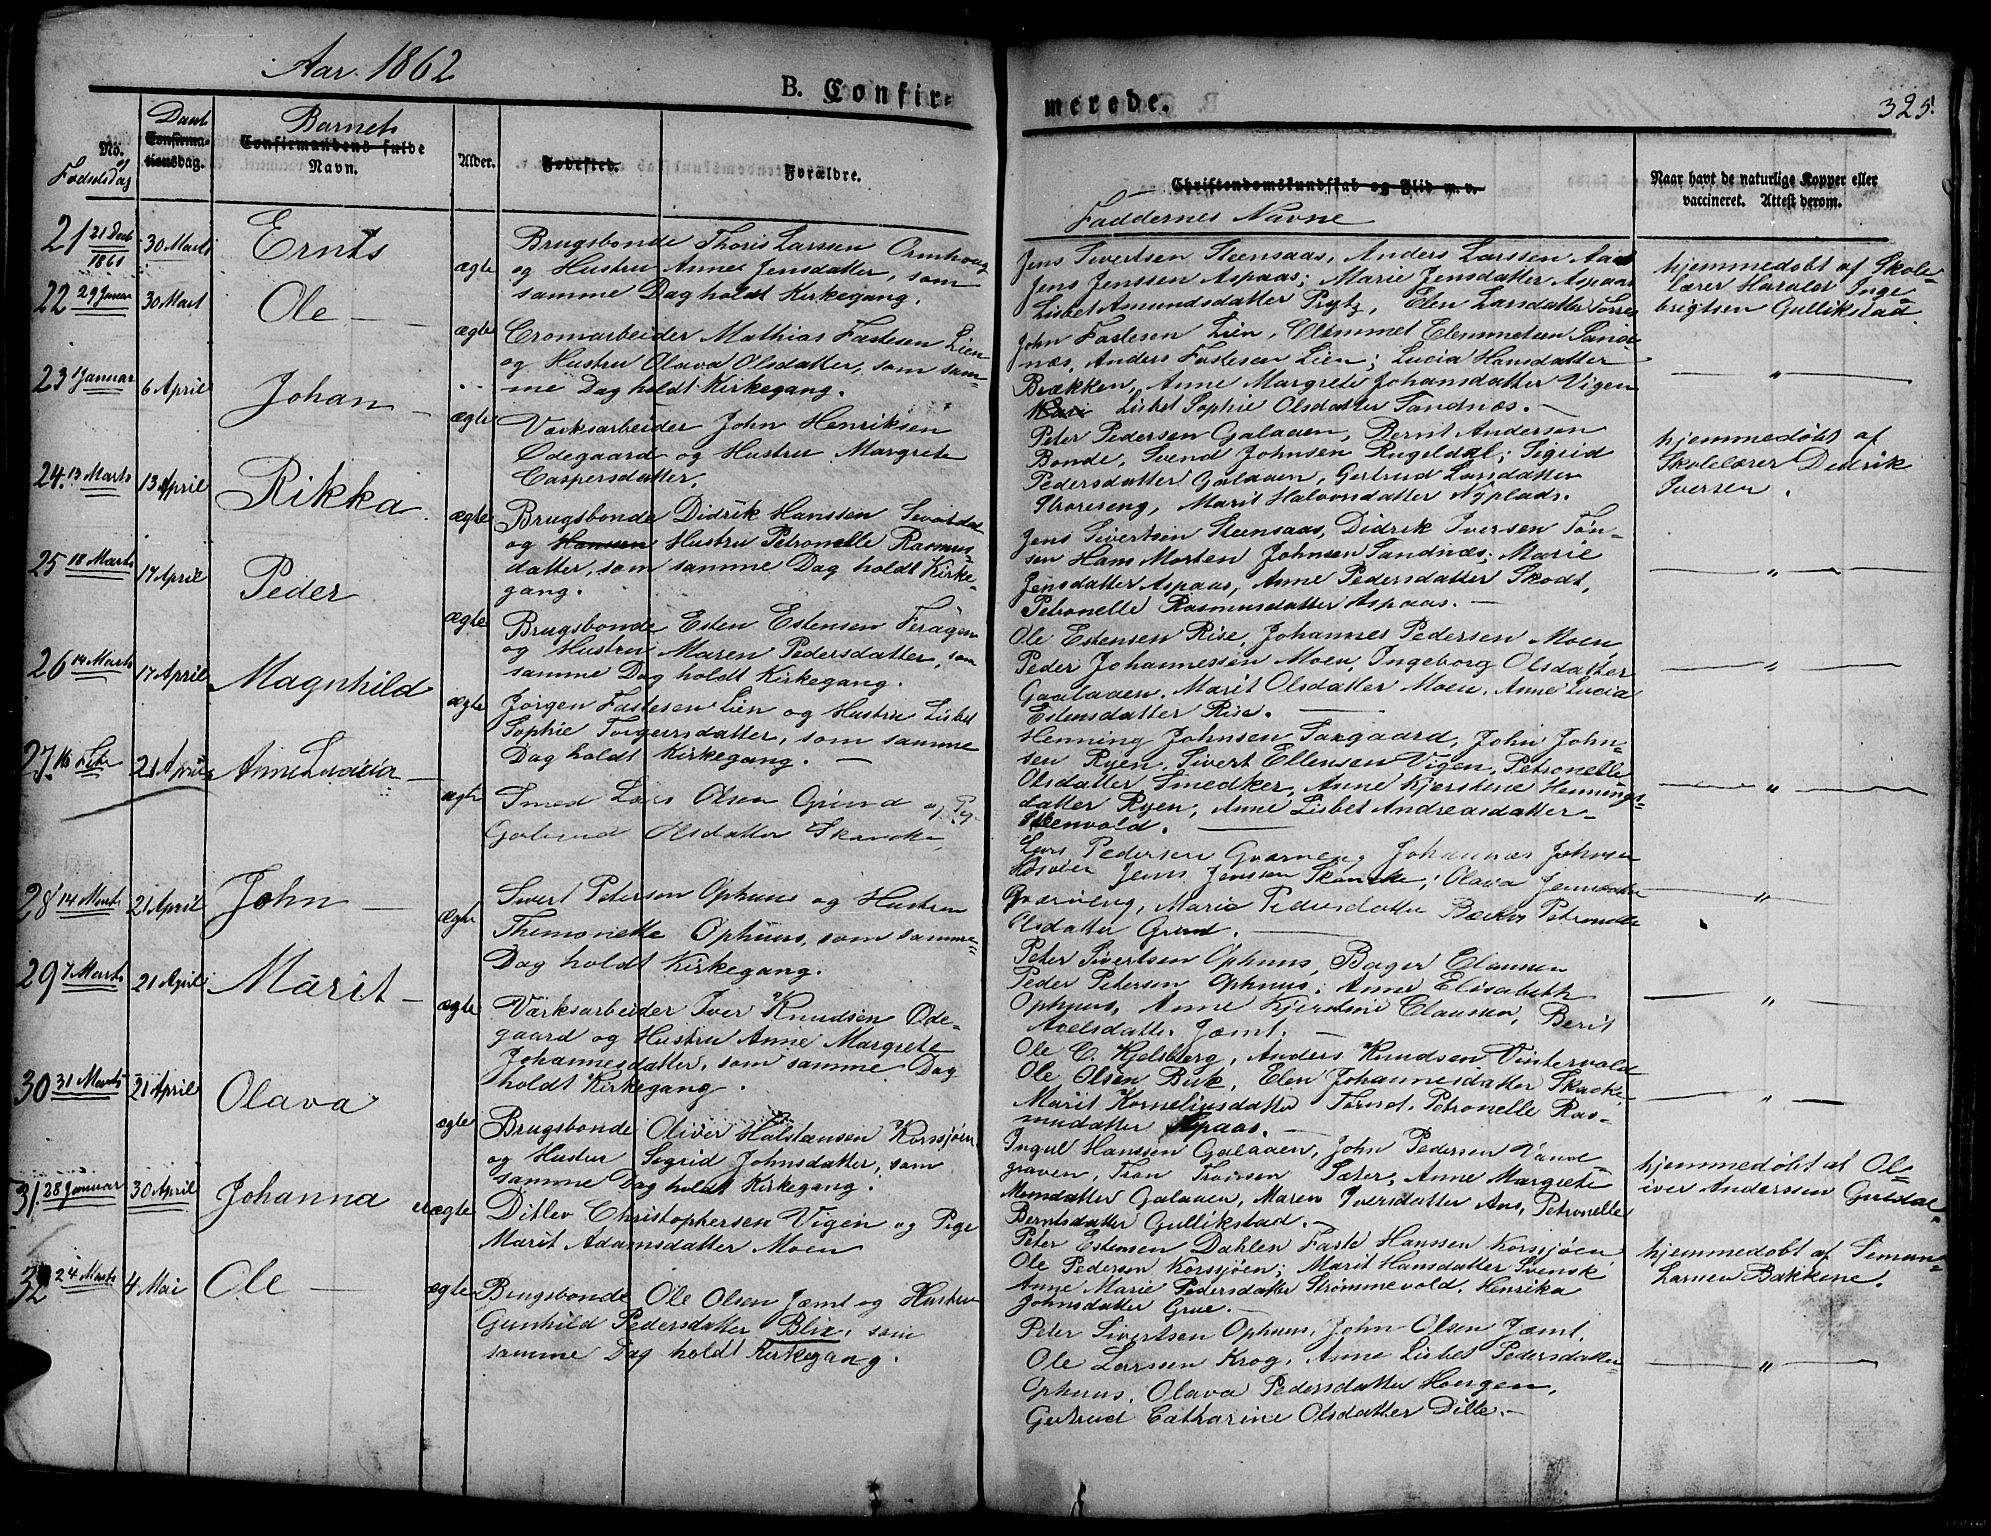 Aar 1862
B. Confir=
merede.
325.
No. og Fødselsdag
Daab
Confirma-
tionsdag.
Barnets
Confirmandens fulde
Navn.
Alder.
Fødested.
Forældre.
Christendomskundskab og Flid m. v.
Faddernes Navne
Naar havt de naturlige Kopper eller
vaccineret. Attest derom.
21 21 Decb 1861
30 Marts
Ernts
ægte
Brugsbonde Thoris Larssen Ormhoug
og Hustru Anne Jensdatter, som
samme Dag holdt Kirkegang.
Jens Sivertsen Steensaas, Anders Larssen Aas
Jens Jenssen Aspaas; Marie Jensdatter Aspaas
Lisbet Amundsdatter Prytz, Elen Larsdatter Torres
hjemmedøbt af Skole-
lærer Haralor Inge-
brigtsen Gullikstad.
22 29 Januar
30 Mart
Ole
ægte
Cromarbeider Mathias Fastesen Lien
og Hustru Olava Olsdatter, som sam-
me Dag holdt Kirkegang.
John Fastesen Lien, Clemmet Clemmetsen Sand-
næs, Anders Fastesen Lien; Lucia Hansdatter
Brækken, Anne Margrete Johansdatter Vigen
Lisbet Sophie Olsdatter Sandnæs.
"
23 1 Januar
6 April
Johan
ægte
Værksarbeider John Henriksen
Ødegaard og Hustru Margrete
Caspersdatter.
Peter Pedersen Galaaen, Bernt Andersen
Bonde, Svend Johnsen Rugeldal; Sigrid
Pedersdatter Galaaen, Gertrud Larsdatter
Storereng, Marit Halvorsdatter Nyplads.
hjemmedøbt af
Skolelærer Dedrik
Iversen.
24. 13 Marts
13 April
Rikka
ægte
Brugsbonde Didrik Hanssen Sevatdal
og Hansen Hustru Petronelle Rasmus-
datter, som samme Dag holdt Kirke-
gang.
Jens Sivertsen Steensaas, Didrik Iversen Tøn-
sen Hans Morten Johnsen Sandnæs; Marie
Jensdatter Aspaas, Anne Pedersdatter Skodt,
Petronelle Rasmusdatter Aspaas.
"
25 18 Marts
17 April
Peder
ægte
Brugsbonde Esten Estensen Feragen
og Hustru Maren Pedersdatter, som
samme Dag holdt Kirkegang.
Ole Estensen Rise, Johannes Pedersen Moen,
Peder Johannessen Moen, Ingeborg Olsdatter
Gaalaaen, Marit Olsdatter Moen, Anne Lucia
Estensdatter Rise.
"
26 14 Marts
17 April
Magnhild
ægte
Jørgen Fastesen Lien og Hustru Lisbet
Sophie Torgersdatter, som samme
Dag holdt Kirkegang.
Henning Johnsen Targaard, John John-
sen Ryen, Sivert Ellensen Vigen, Petronelle
Olsdatter Smedker, Anne Kjerstine Hennings-
datter Ryen, Anne Lisbet Andreasdatter
Stenvold.
"
27. 16 Febr
21 April
Anne Lucia
ægte
Smed Lars Olsen Grind og
Olsdatter Skancke
Lars Pedersen Gværneng Johannes Johnsen
Jens Jenssen Skancke; Olava Jensdatter
Gværneng, Marie Pedersdatter Petronelle
Olsdatter Grind.
"
28 14 Marts
21 April
John
ægte
Sivert Petersen Ophuus og Hustru
Themonette Ophuus, som samme
Dag holdt Kirkegang.
Peter Sivertsen Ophuus, Bager Clausen
Peder Petersen Ophuus; Anne Elisabeth
Ophuus, Anne Kjerstine Clausen, Berit
Axelsdatter Jæmt.
"
29 7 Marts
21 April
Marit
ægte
Værksarbeider Iver Knudsen Øde-
gaard og Hustru Anne Margrete
Johannesdatter, som samme Dag
holdt Kirkegang.
Ole C. Kjelsberg, Anders Knudsen Vintervold
Ole Olsen Buk, Elen Johannesdatter Skacke
Marit Korneliusdatter Tørud, Petronelle Ras-
musdatter Aspaas.
"
30 31 Marts
21 April
Olava
ægte
Brugsbonde Oliver Halstensen Korssjøen
og Hustru Sigrid Johnsdatter, som
samme Dag holdt Kirkegang.
Ingul Hanssen Galaaen, John Pedersen Vand-
graven, Tron Tronsen Sæter, Anne Margrete
Monsdatter Galaaen, Maren Iversdatter Aas, Petronelle
Berntsdatter Gullikstad.
hjemmedøbt af Ol-
iver Anderssen Guldal.
31. 28 Januar
30 April
Johanna
uægte
Ditlev Christophersen Vigen og Pige
Marit Adamsdatter Moen
Peter Estensen Dahlen Faste Hanssen Korssjøen
Ole Pedersen Korssjøen; Marit Hansdatter Svensk
Anne Marie Pedersdatter Strømmevold, Henrika
Johnsdatter Grue.
hjemmedøbt af Simon
Larsen Bakkene.
32 24 Marts
4 Mai
Ole
ægte
Brugsbonde Ole Olsen Jæmt og Hustru
Gunhild Pedersdatter Blix, som
samme Dag holdt Kirkegang.
Peter Sivertsen Ophuus, John Olsen Jæmt,
Ole Larssen Krog, Anne Lisbet Pedersdatter
Ophuus, Olava Pedersdatter Hougen,
Gertrud Catharine Olsdatter Dille.
"